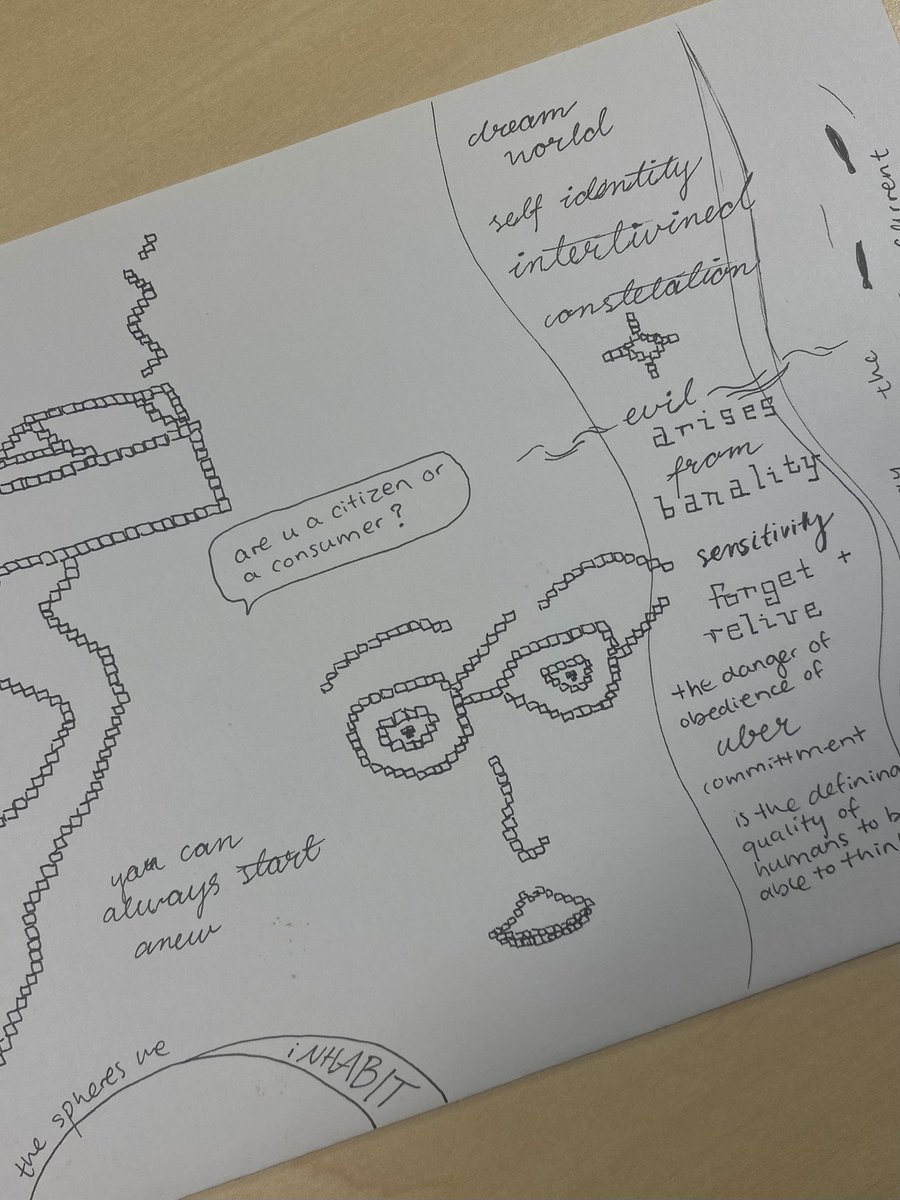 dream
world
self identity
intertwined
constelation
evil
arises
from
banality
sensitivity
forget +
relive
the danger of
obedience of
uber
committment
is the defining
quality of
humans to b
able to thin
are u a citizen or
a consumer?
you can
always start
anew
the spheres we
iNHABIT
the